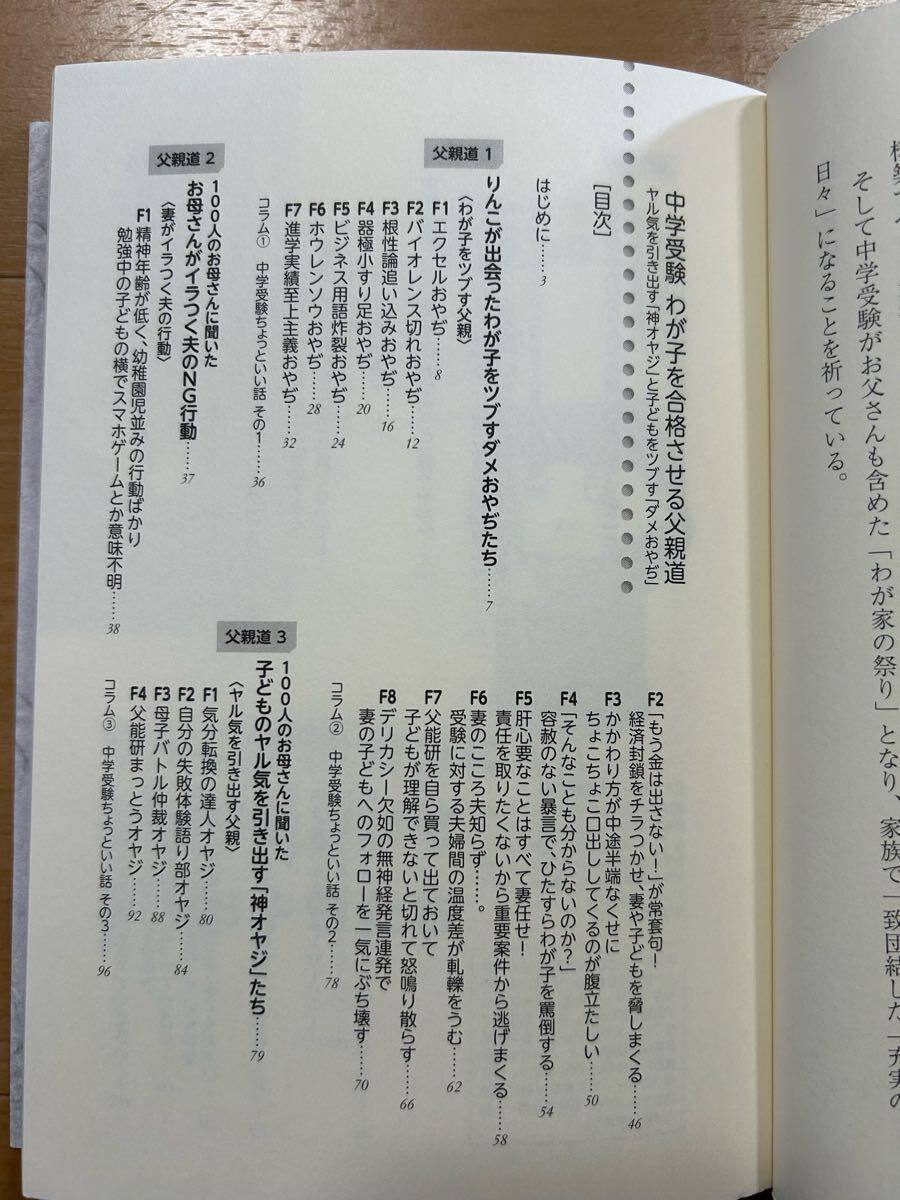 そして中学受験がお父さんも含めた「わが家の祭り」となり、家族で一致団結した「充実の
日々」になることを祈っている。
中学受験 わが子を合格させる父親道
ヤル気を引き出す「神オヤジ」と子どもをツブす「ダメおやぢ」
[目次]
はじめに……3
父親道 1
りんこが出会ったわが子をツブすダメおやぢたち……7
〈わが子をツブす父親〉
F1 エクセルおやぢ……8
F2 バイオレンス切れおやぢ……12
F3 根性論追い込みおやぢ……16
F4 器極小すり足おやぢ……20
F5 ビジネス用語炸裂おやぢ……24
F6 ホウレンソウおやぢ……28
F7 進学実績至上主義おやぢ……32
コラム① 中学受験ちょっといい話 その1……36
父親道 2
100人のお母さんに聞いた
お母さんがイラつく夫のNG行動……37
〈妻がイラつく夫の行動〉
F1 精神年齢が低く、幼稚園児並みの行動ばかり
勉強中の子どもの横でスマホゲームとか意味不明……38
F2 「もう金は出さない!」が常套句!
経済封鎖をチラつかせ、妻や子どもを脅しまくる……46
F3 かかわり方が中途半端なくせに
ちょこちょこ口出ししてくるのが腹立たしい……50
F4 「そんなことも分からないのか?」
容赦のない暴言で、ひたすらわが子を罵倒する……54
F5 肝心要なことはすべて妻任せ!
責任を取りたくないから重要案件から逃げまくる……58
F6 妻のこころ夫知らず……。
受験に対する夫婦間の温度差が軋轢をうむ……62
F7 父能研を自ら買って出ておいて
子どもが理解できないと切れて怒鳴り散らす……66
F8 デリカシー欠如の無神経発言連発で
妻の子どもへのフォローを一気にぶち壊す……70
コラム② 中学受験ちょっといい話 その2……78
父親道 3
100人のお母さんに聞いた
子どものヤル気を引き出す「神オヤジ」たち……79
〈ヤル気を引き出す父親〉
F1 気分転換の達人オヤジ……80
F2 自分の失敗体験語り部オヤジ……84
F3 母子バトル仲裁オヤジ……88
F4 父能研まっとうオヤジ……92
コラム③ 中学受験ちょっといい話 その3……96